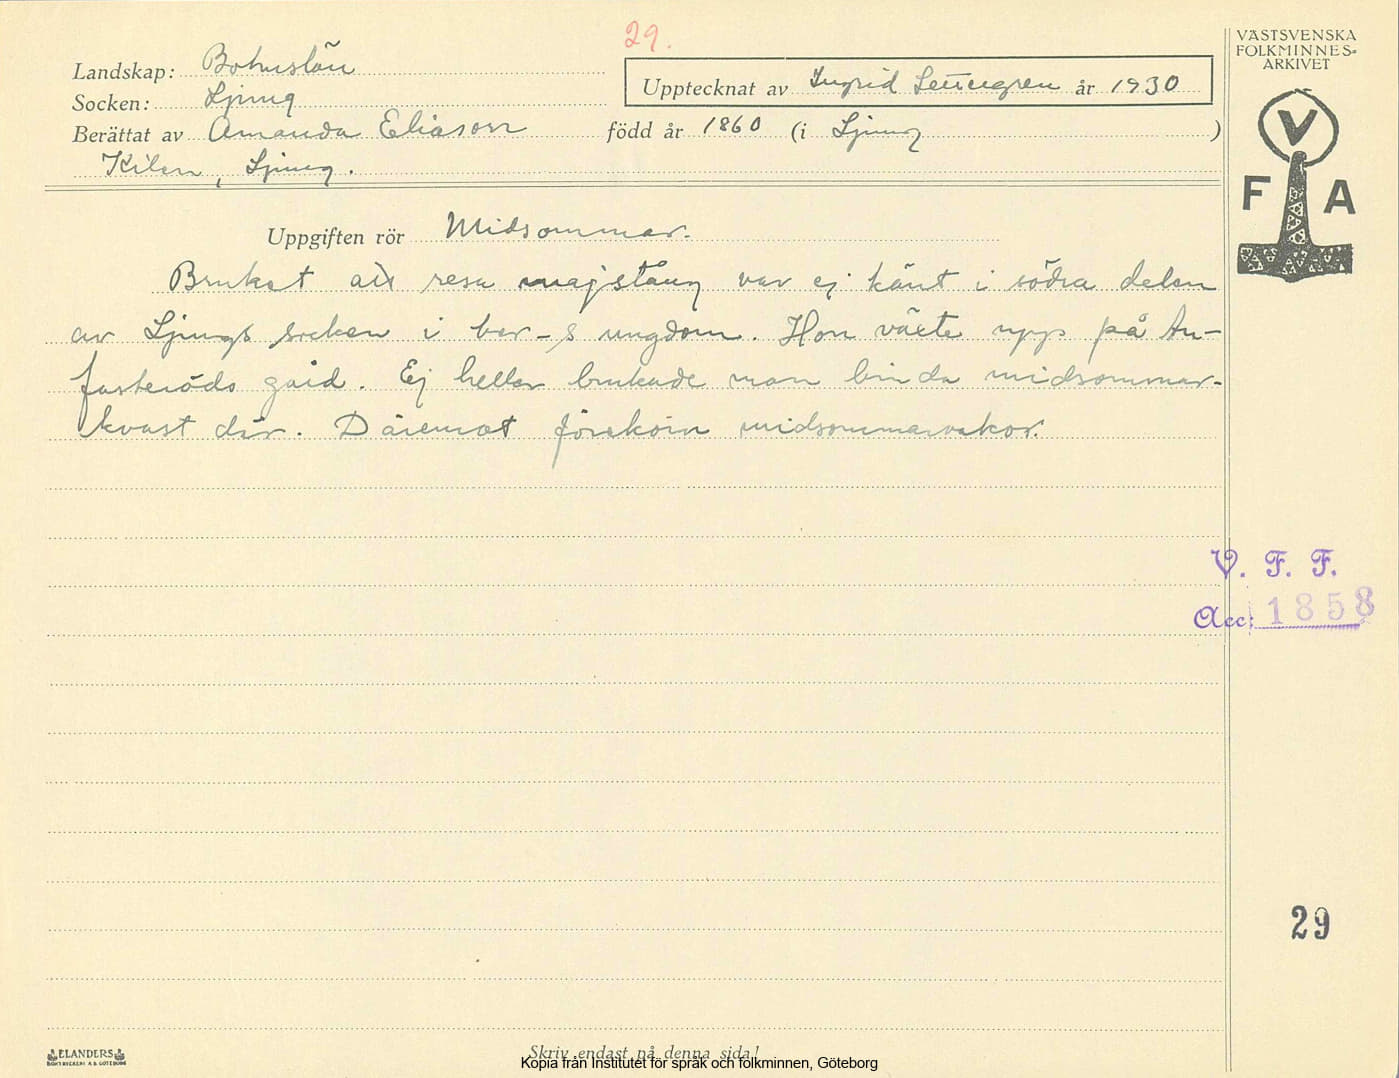 29.
VÄSTSVENSKA
FOLKMINNES-
ARKIVET
Landskap: Bohuslän
Upptecknat av Ingrid år 1930
Socken: Ljung
Berättat av Amanda Eliason född år 1860 (i Ljung)
Kilen, Ljung.
V
F A
Uppgiften rör Midsommar.
Bruket att resa majstång var ej känt i södra delen
av Ljungs socken i ber-s ungdom. Hon växte upp på An-
fasteröds gård. Ej heller brukade man binda midsommar-
kvast där. Däremot förekom midsommarvakor.
V. F. F.
Acc: 1858
29
ELANDERS
BOKTRYCKERI A.B. GÖTEBORG
Skriv endast på denna sida!
Kopia från Institutet för språk och folkminnen, Göteborg